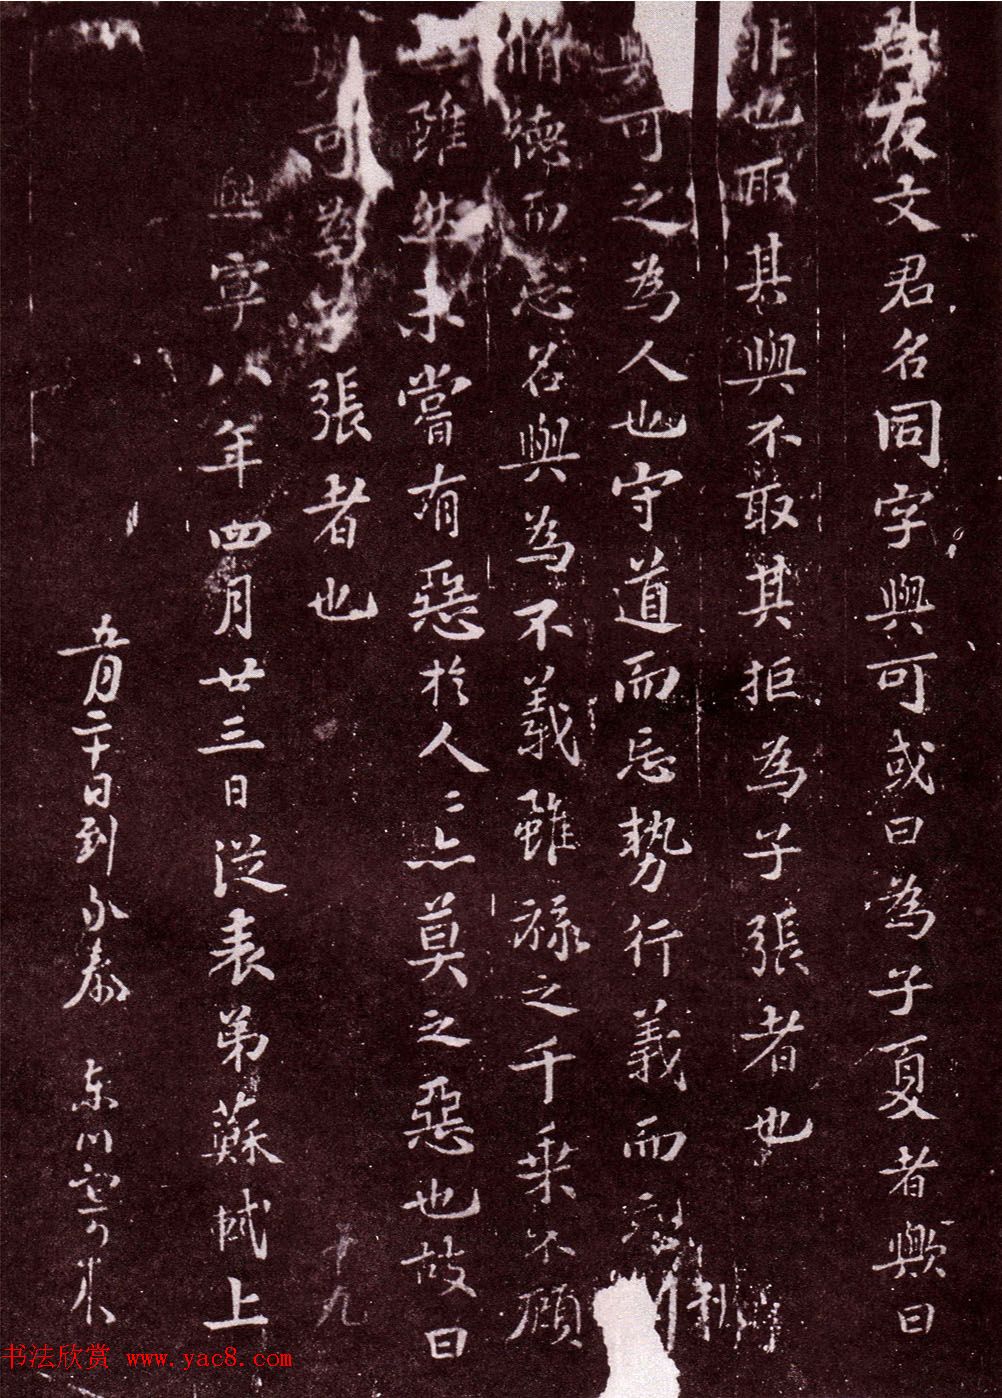 吾友文君名同字與可或曰為子夏者歟曰
非也取其與不取其拒為子張者也
與可之為人也守道而忘勢行義而忘利
脩德而忘名與為不義雖祿之千乘不顧
也雖然未嘗有惡於人〻亦莫之惡也故曰
與可為子張者也
十九
熙寧八年四月廿三日從表弟蘇軾上
五月二十日到永泰 東川
书法欣赏 www.yac8.com